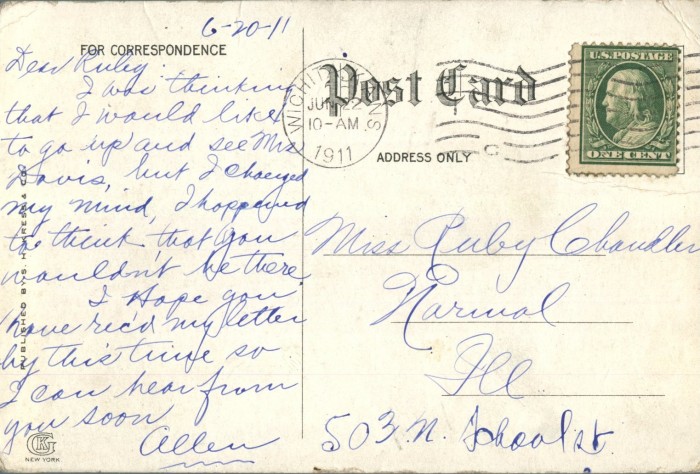 6-20-11
FOR CORRESPONDENCE
Dear Ruby:
I was thinking
that I would like
to go up and see Mrs
Davis, but I changed
my mind, I happened
to think that you
wouldn't be there
I Hope you
have rec'd my letter
by this time so
I can hear from
you soon
Allen
PUBLISHED BY S. H. KRESS & CO.
GK
NEW YORK.
Post Card
ADDRESS ONLY
WICHITA KANS
JUN 22
10-AM
1911
U.S. POSTAGE
ONE CENT
Miss Ruby Chandler
Normal
Ill
503 N. School st.